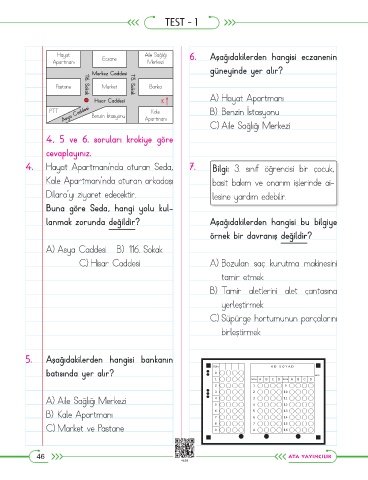 TEST - 1
Hayat
Apartmanı
Eczane
Aile Sağlığı
Merkezi
Merkez Caddesi
116. Sokak
115. Sokak
Pastane
Market
Banka
Hisar Caddesi
PTT
Asya Caddesi
Benzin İstasyonu
Kale
Apartmanı
4, 5 ve 6. soruları krokiye göre
cevaplayınız.
4. Hayat Apartmanı'nda oturan Seda,
Kale Apartmanı'nda oturan arkadaşı
Dilara'yı ziyaret edecektir.
Buna göre Seda, hangi yolu kul-
lanmak zorunda değildir?
A) Asya Caddesi B) 116. Sokak
C) Hisar Caddesi
5. Aşağıdakilerden hangisi bankanın
batısında yer alır?
A) Aile Sağlığı Merkezi
B) Kale Apartmanı
C) Market ve Pastane
6. Aşağıdakilerden hangisi eczanenin
güneyinde yer alır?
A) Hayat Apartmanı
B) Benzin İstasyonu
C) Aile Sağlığı Merkezi
7. Bilgi: 3. sınıf öğrencisi bir çocuk,
basit bakım ve onarım işlerinde ai-
lesine yardım edebilir.
Aşağıdakilerden hangisi bu bilgiye
örnek bir davranış değildir?
A) Bozulan saç kurutma makinesini
tamir etmek
B) Tamir aletlerini alet çantasına
yerleştirmek
C) Süpürge hortumunun parçalarını
birleştirmek
AD SOYAD
46
ATA YAYINCILIK